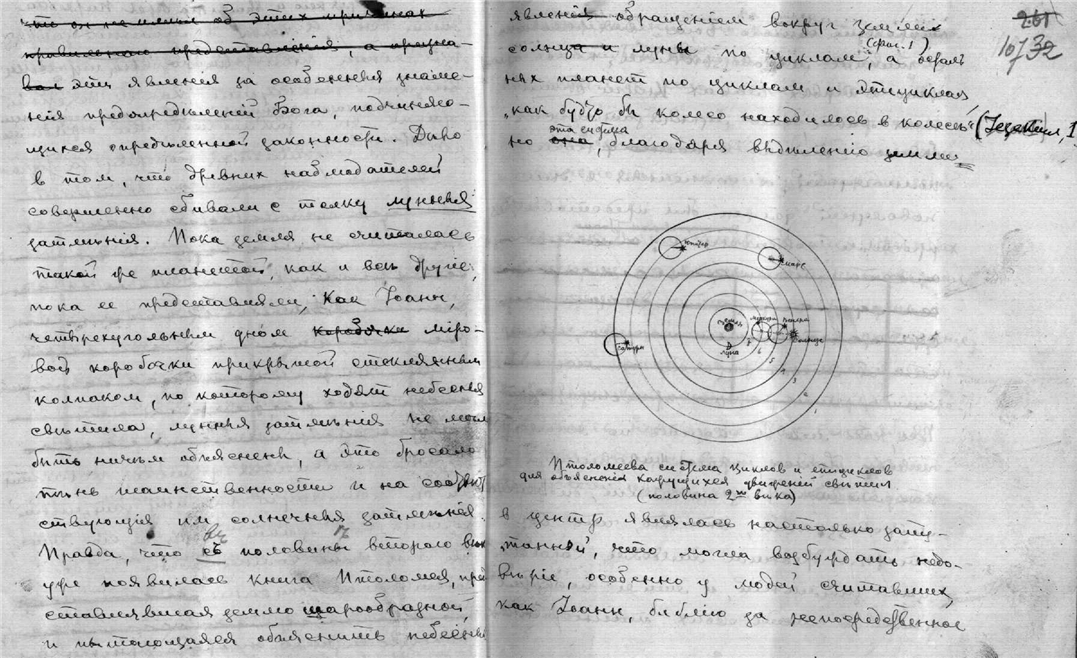 что он не имел об этих причинах
правильного представленія, а призна-
вал эти явленія за особенныя знаме-
нія предопредѣленій Бога, подчиняю-
щияся опредѣленной законности. Дѣло
в том, что древних наблюдателей
совершенно сбивали с толку лунныя
затменія. Пока земля не считалась
такой же планетой, как и всѣ другіе,
пока ее представляли, как Іоанн,
четырехугольным дном коробочки міро-
вой коробочки прикрытой стеклянным
колпаком, по которому ходят небесныя
свѣтила, лунныя затменія не могли
быть ничѣм объяснены, а это бросало
тѣнь таинственности и на соотвѣт-
ствующія им солнечныя затменія.
Правда, что съ половины второго вѣка
уже появилась книга Птоломея, пред-
ставлявшая землю шарообразной
и пытающаяся объяснить небесныя
явленія обращеніем вокруг земли
солнца и луны по циклам (рис. 1), а осталь-
ных планет по циклам и эпициклам
„как будто бы колесо находилось в колесѣ" (Іезекіил, 1
но она эта система, благодаря выдѣленію земли
261
1073
32
Юпитер
Марс
Сатурн
Земля
Луна
Меркурій
Венера
Солнце
Птоломеева система циклов и эпициклов
для объясненія кажущихся движеній свѣтил
(половина 2го вѣка)
в центр являлась настолько запу-
танной, что могла возбуждать недо-
вѣріе, особенно у людей считавших,
как Іоанн, библію за непосредственное